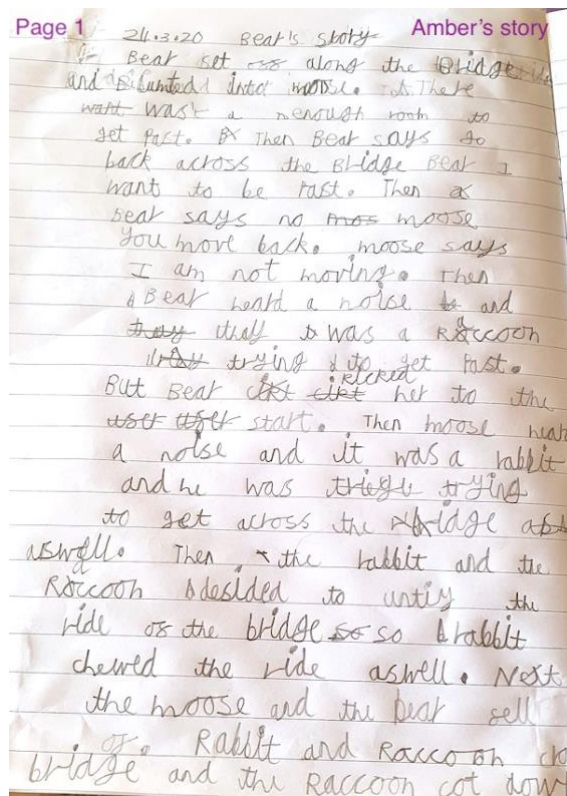 Page 1 Amber's story
24.3.20 Bear's story
Bear set off along the Bridge
and into moose. There
want was a nenough room to
get past. Then Bear says go
back across the Bridge Bear I
want to be past. Then
Bear says no mos moose
You move back. moose says
I am not moving. Then
Bear heard a noise and
they was a Raccoon
trying to get past.
But Bear kicked her to the
start. Then moose hear
a noise and it was a rabbit
and he was trying
to get across the bridge
aswell. Then the rabbit and the
Raccoon desided to untiy the
ride of the bridge so so rabbit
chewed the ride aswell. Next
the moose and the bear sell
of. Rabbit and Raccoon
bridge and the Raccoon cot down